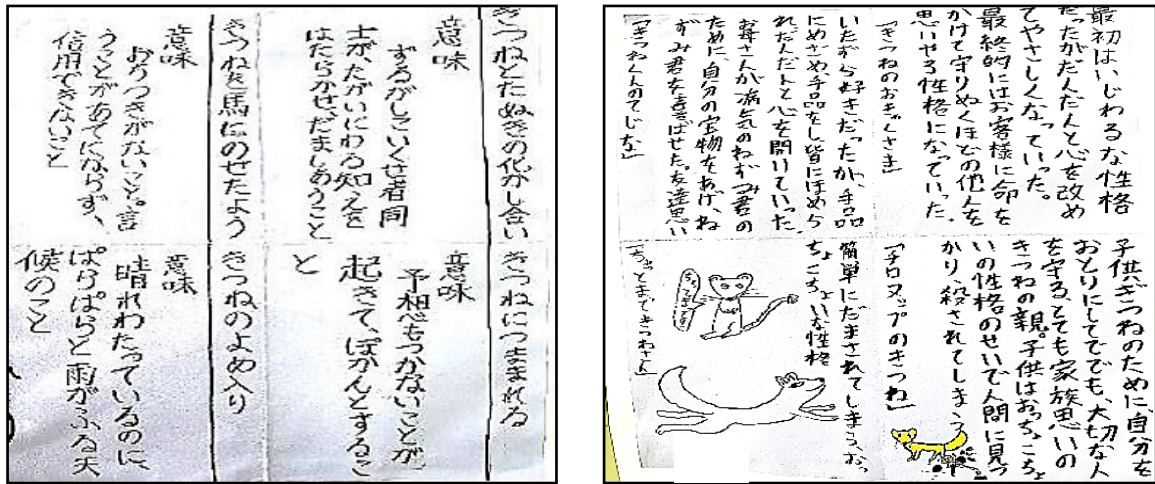 きつねとたぬきの化かし合い
意味
ずるがしこいくせ者同
士が、たがいにわる知えを
はたらかせ、だましあうこと
きつねにつままれる
意味
予想もつかないことが
起きて、ぽかんとするこ
と
きつねを馬にのせたよう
意味
おちつきがないこと。言
うことがあてにならず、
信用できないこと
きつねのよめ入り
意味
晴れわたっているのに、
ぱらぱらと雨がふる天
候のこと
最初はいじわるな性格
だったがだんだんと心を改め
てやさしくなっていった。
最終的にはお客様に命を
かけて守りぬくほどの他人を
思いやる性格になっていった
「きつねのおきゃくさま」
いたずら好きだったが、手品
にめざめ、手品をし皆にほめら
れだんだんと心を開けていった。
お母さんが病気のねずみ君の
ために、自分の宝物をあげ、ね
ずみ君を喜ばせた。友達思い
「きつねくんのてじな」
子供ぎつねのために、自分を
おとりにしてでも、大切な人
を守る、とても家族思いの
きつねの親。子供はおっちょこちょ
いの性格のせいで人間に見つ
かり、殺されてしまう
「チロヌップのきつね」
簡単にだまされてしまう、おっ
ちょこちょいな性格
「ちょっとまてきつねさん」